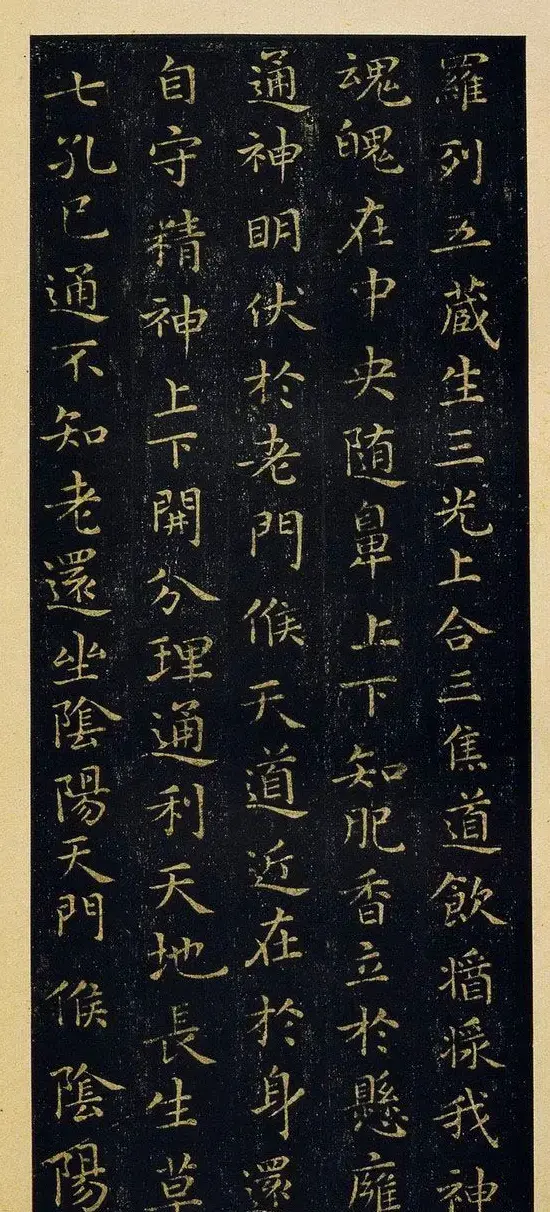 羅列五蔵生三光上合三焦道飲漿我神
魂魄在中央随鼻上下知肥香立於懸廱
通神明伏於老門候天道近在於身還
自守精神上下開分理通利天地長生草
七孔已通不知老還坐陰陽天門候陰陽